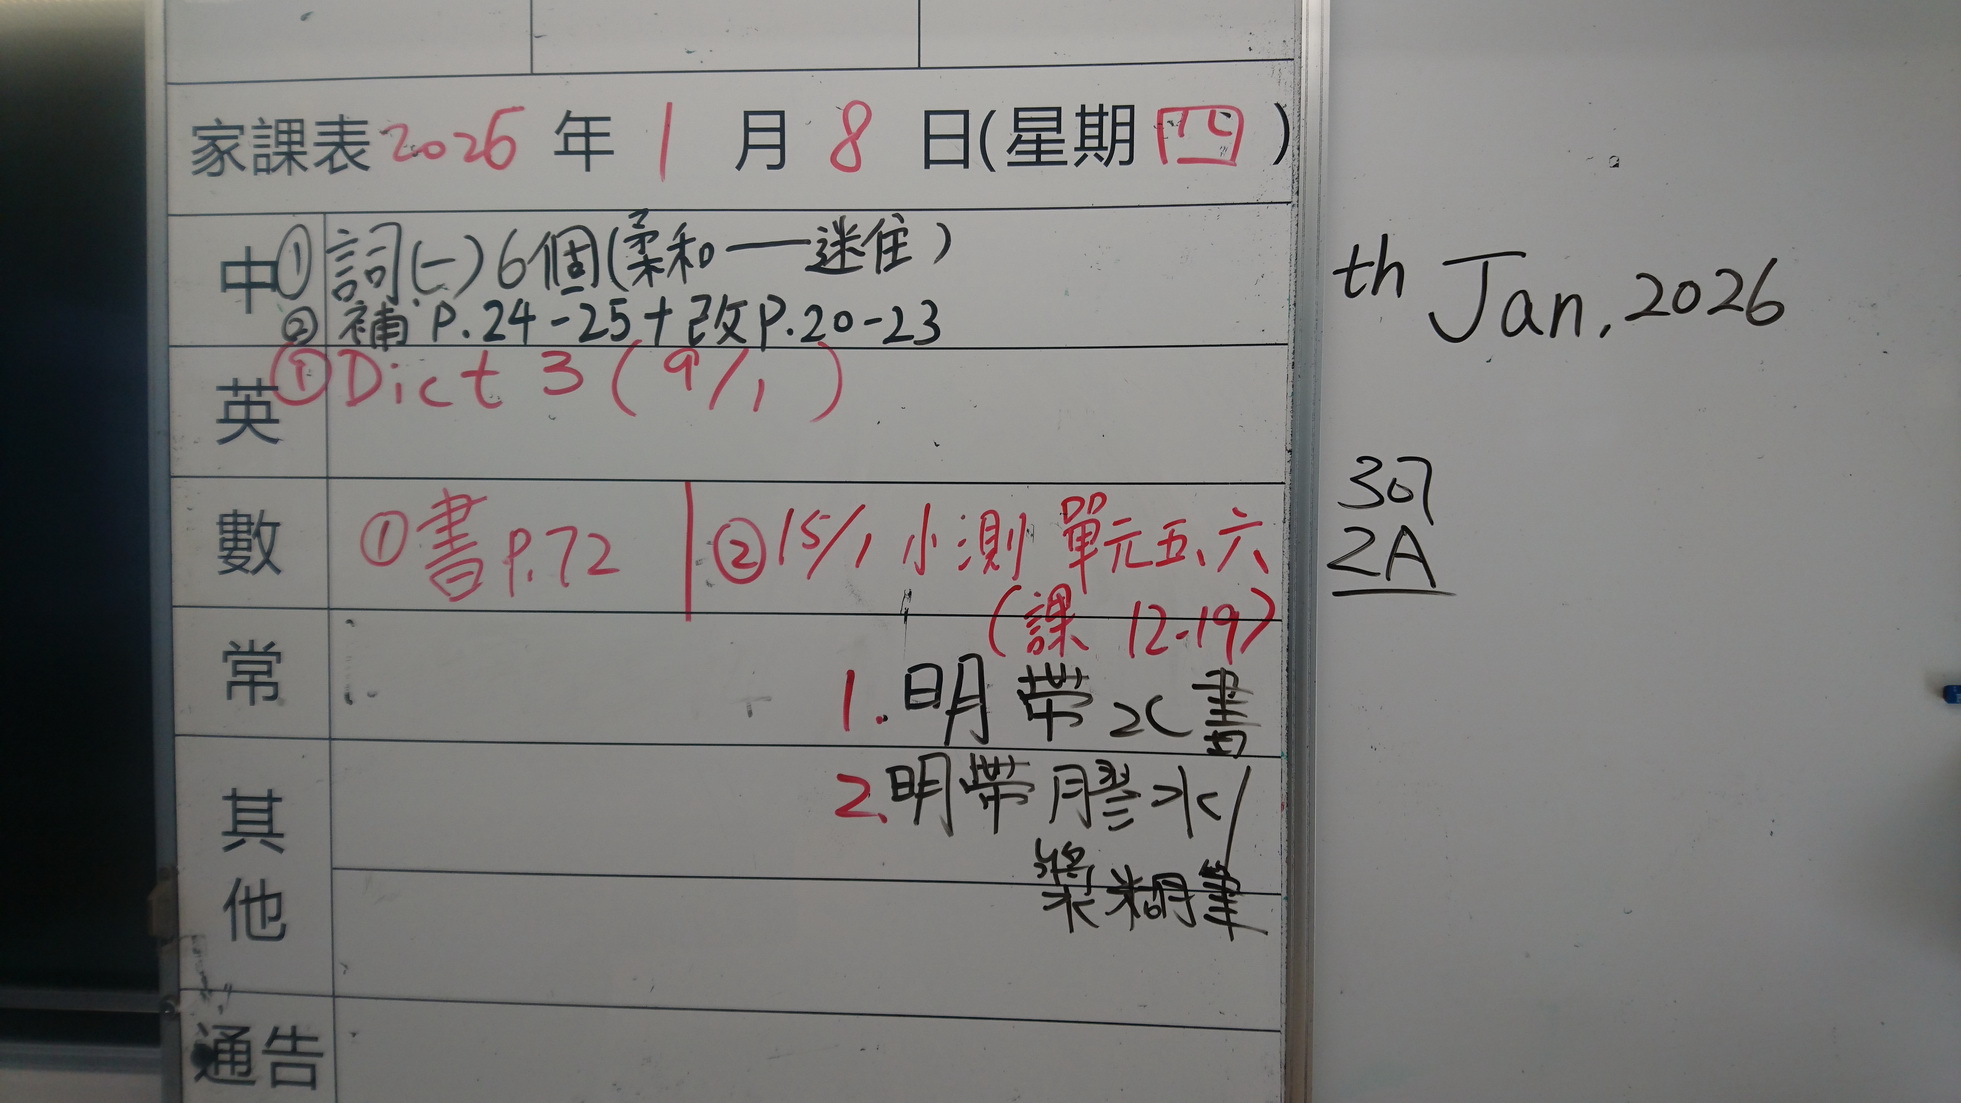 家課表 2026 年 1 月 8 日(星期 四 )
中 ① 詞(一) 6個(柔和——迷住)
② 補 P.24-25+改P.20-23
英 ① Dict 3 ( 9/1 )
數 ① 書 P.72 ② 15/1 小測 單元五、六
(課 12-19)
常
1. 明帶 2C 書
其他
2. 明帶膠水/
漿糊筆
通告
th Jan, 2026
307
2A